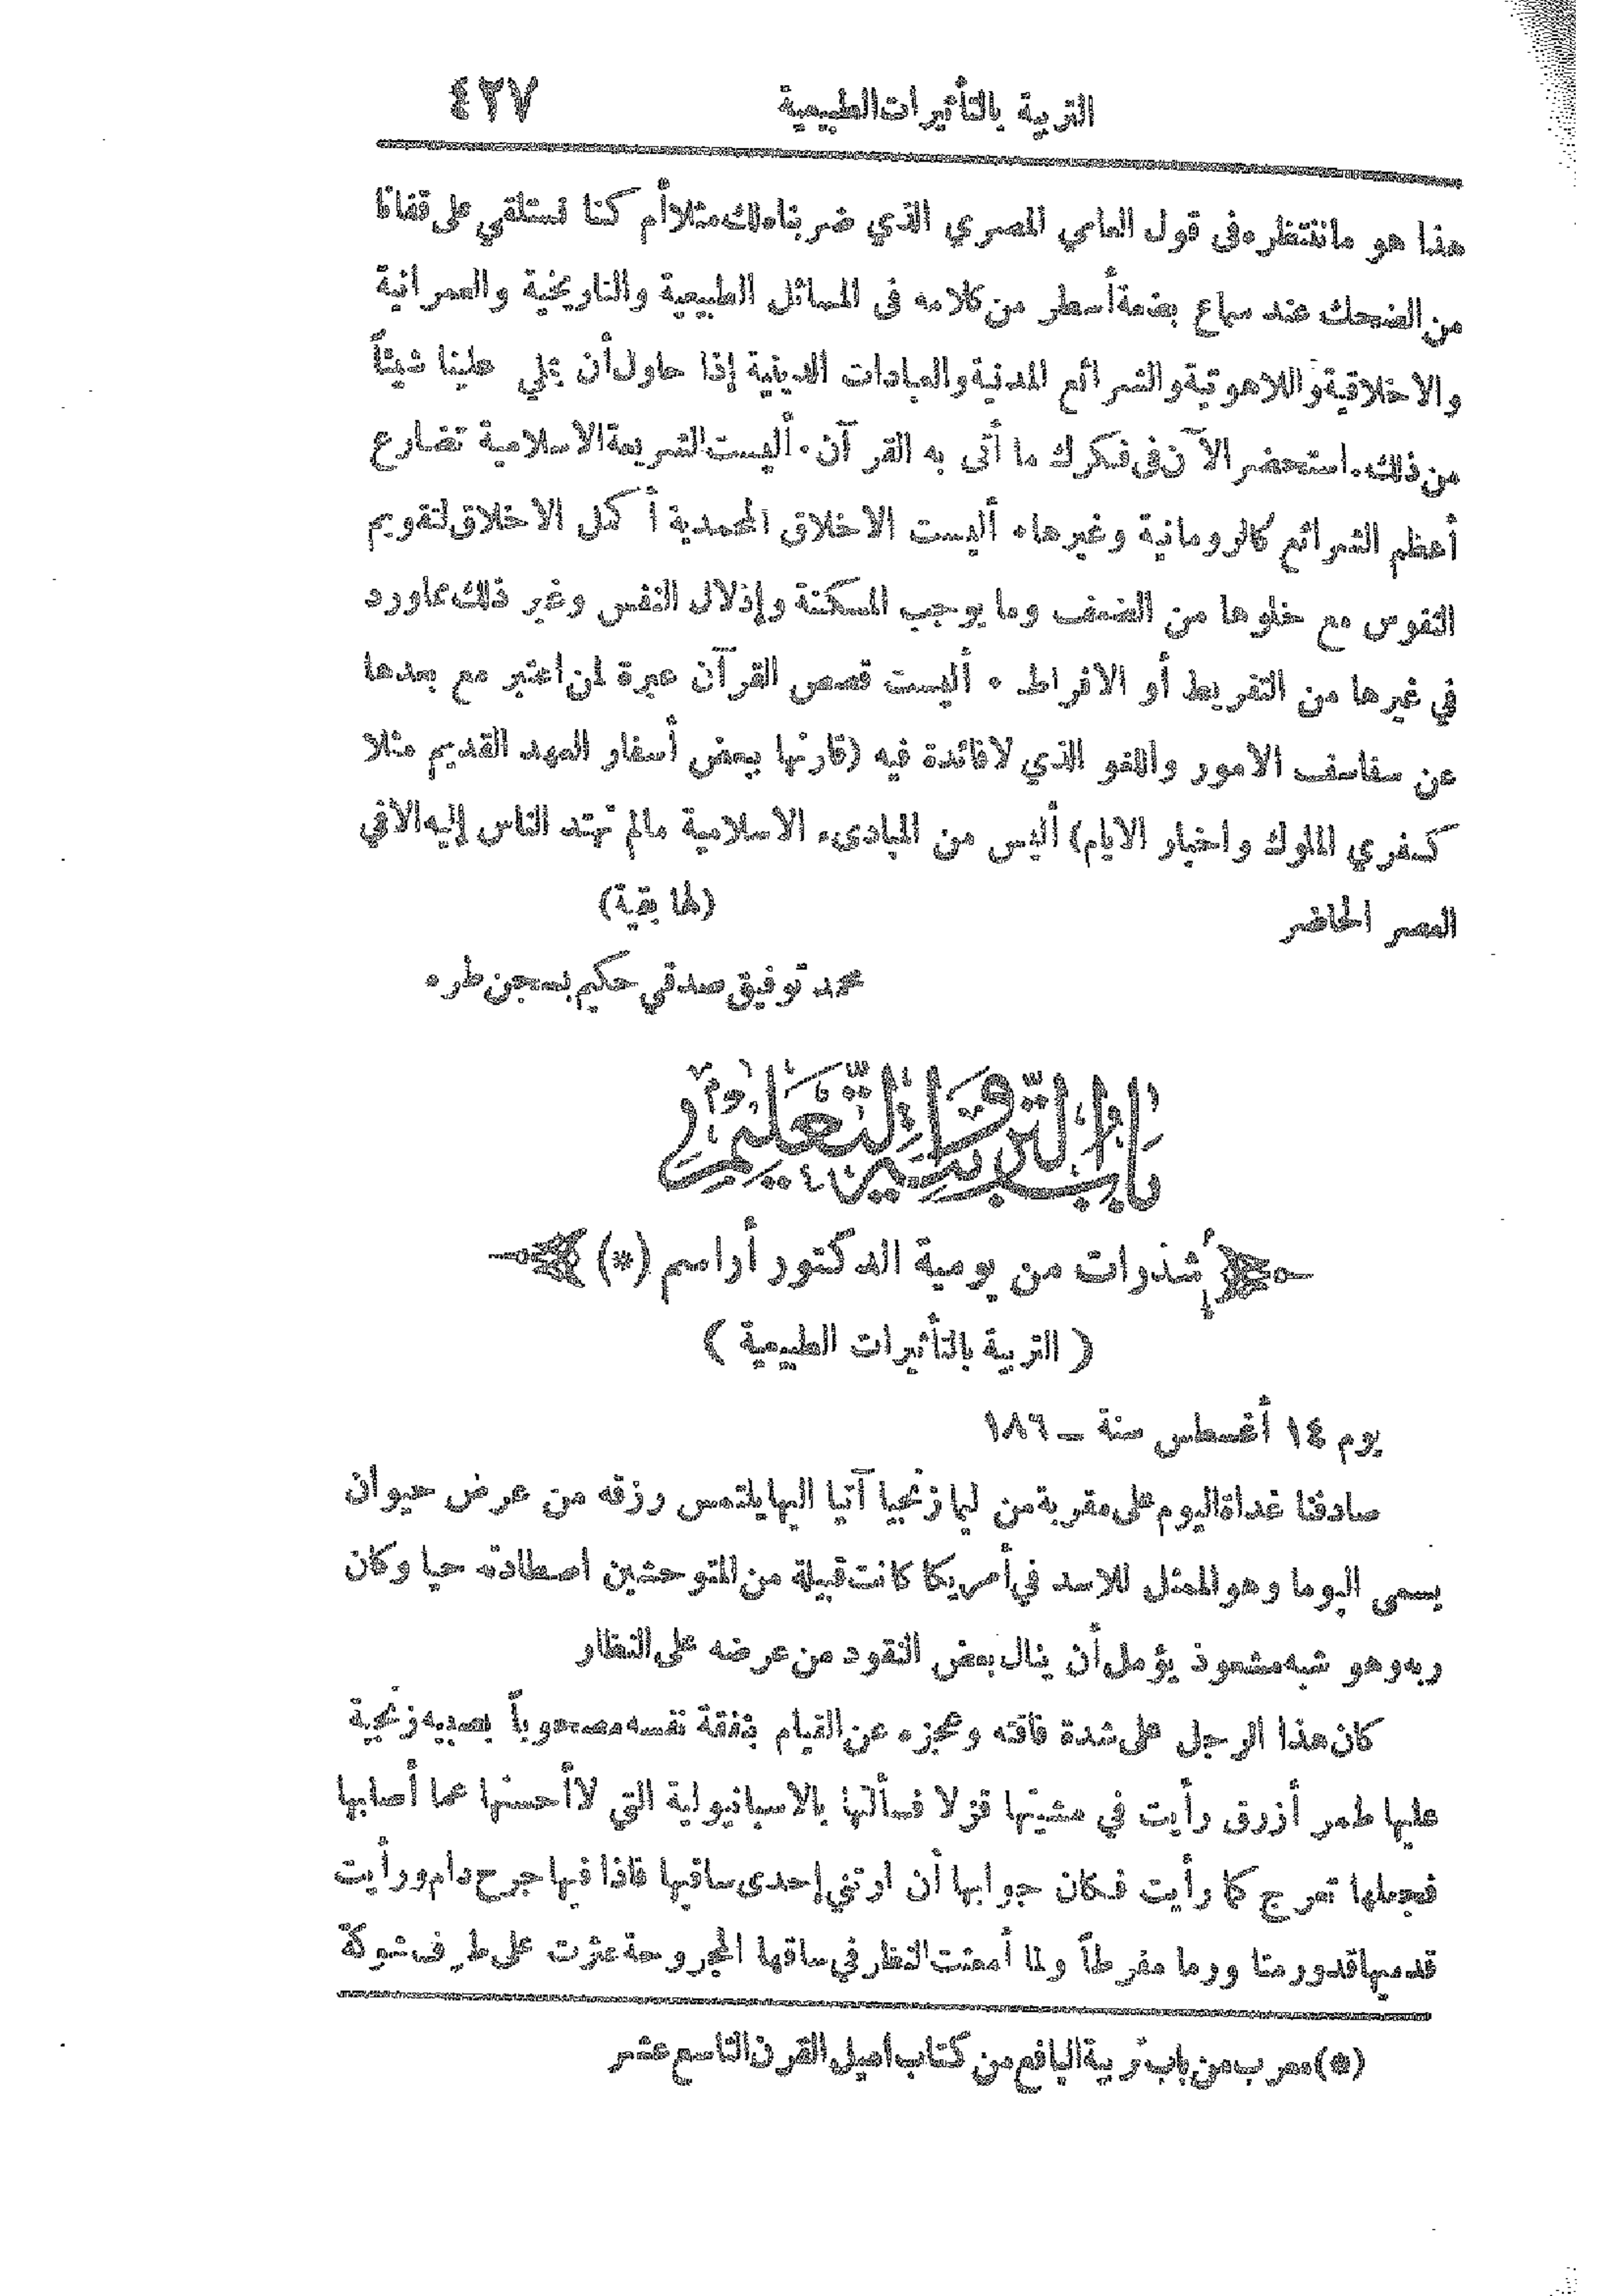 التربية بالتأثيرات الطبيعية ٤٢٧
هذا هو ما ننتظره في قول العامي المصري الذي ضربناه لك مثلا أم كنا نستلقي على قفانا
من الضحك عند سماع بضعة أسطر من كلامه في المسائل الطبيعية والتاريخية والعمرانية
والاخلاقية واللاهوتية والشرائع المدنية والعبادات الدينية إذا حاول أن يملي علينا شيئاً
من ذلك. استحضر الآن في فكرك ما أتى به القرآن. أليست الشريعة الاسلامية تضارع
أعظم الشرائع كالرومانية وغيرها. أليست الاخلاق المحمدية أكمل الاخلاق لتقويم
النفوس مع خلوها من الضعف وما يوجب المسكنة وإذلال النفس وغير ذلك مما ورد
في غيرها من التفريط أو الافراط. أليست قصص القرآن عبرة لمن اعتبر مع بعدها
عن سفاسف الامور واللغو الذي لا فائدة فيه (قارنها ببعض أسفار العهد القديم مثلا
كسفري الملوك واخبار الايام) أليس من المبادىء الاسلامية مالم تهتد الناس إليه الا في
العصر الحاضر (لها بقية)
محمد توفيق صدقي حكيم بسجن طره
باب التربية والتعليم
شذرات من يومية الدكتور أراسم (*)
( التربية بالتأثيرات الطبيعية )
يوم ١٤ أغسطس سنة ــ ١٨٦
صادفنا غداة اليوم على مقربة من ليما زنجيا آتيا اليها يلتمس رزقه من عرض حيوان
يسمى البوما وهو الممثل للاسد في أمريكا كانت قبيلة من المتوحشين اصطادته حيا وكان
ربه وهو شبه مشعوذ يؤمل أن ينال بعض النقود من عرضه على النظار
كان هذا الرجل على شدة فاقته وعجزه عن القيام بنفقة نفسه مصحوباً بصبيه زنجية
عليها طمر أزرق رأيت في مشيتها قزلا فسألتها بالاسبانيولية التي لا أحسنها عما أصابها
فجعلها تعرج كما رأيت فكان جوابها أن ارتني إحدى ساقيها فاذا فيها جرح دام ورأيت
قدميها قد ورمتا ورما مفرطاً ولما أمعنت النظر في ساقها المجروحة عثرت على طرف شوكة
(*) معرب من باب تربية اليافع من كتاب اميل القرن التاسع عشر